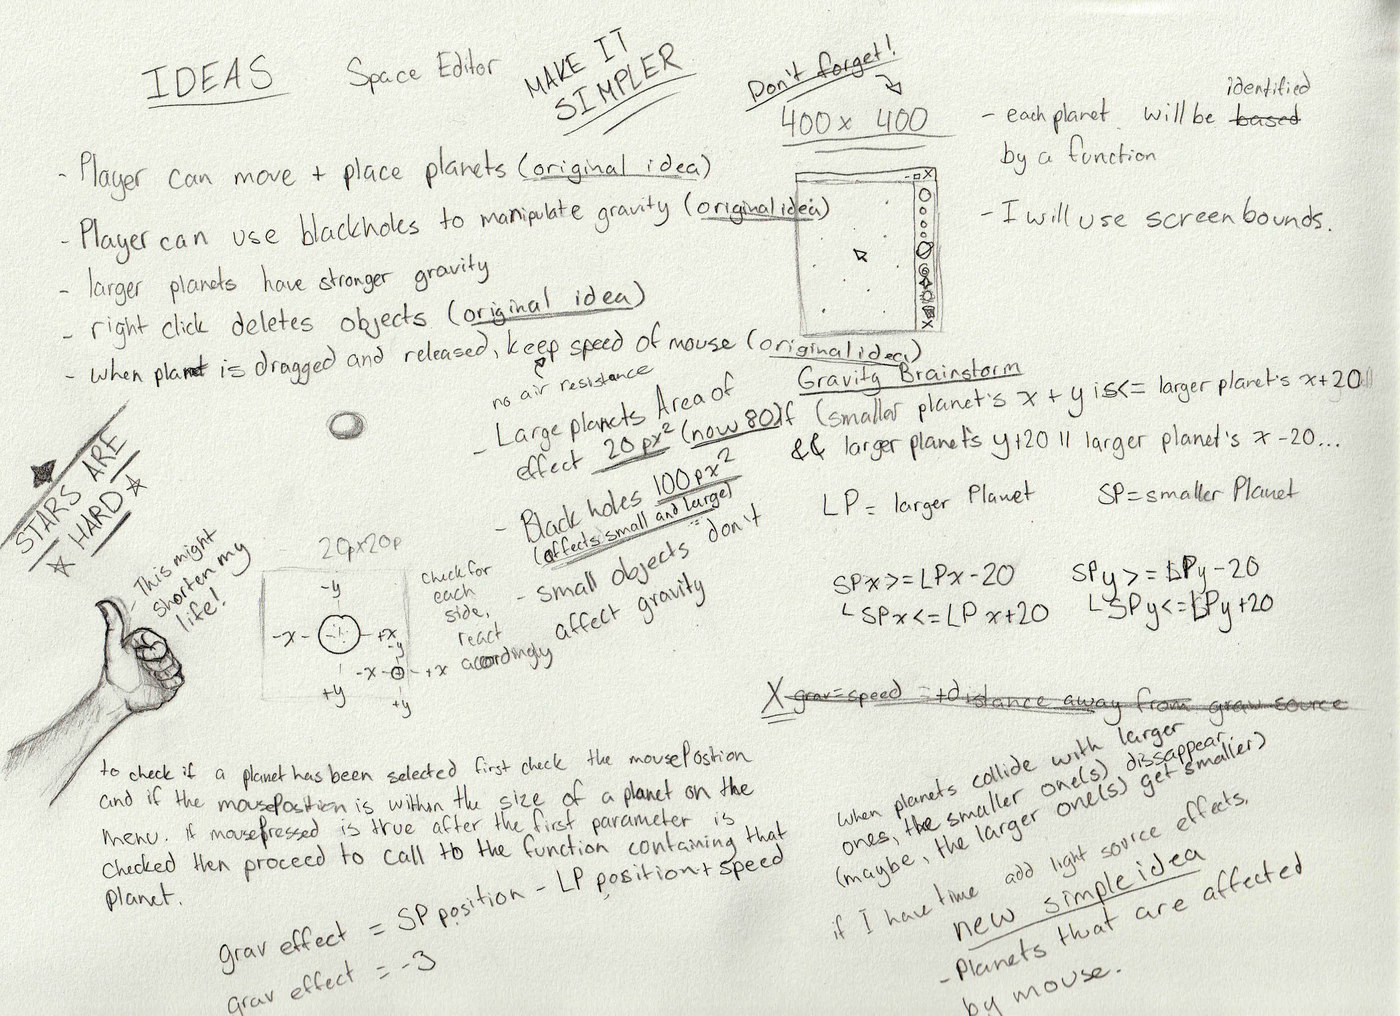 IDEAS
Space Editor
MAKE IT
SIMPLER
Don't forget!
400 x 400
- each planet will be based
identified
by a function
- I will use screen bounds.
- Player can move + place planets (original idea)
- Player can use blackholes to manipulate gravity (original idea)
- larger planets have stronger gravity
- right click deletes objects (original idea)
- when planet is dragged and released, keep speed of mouse (original idea)
no air resistance
- Large planets Area of
effect 20px² (now 80)
- Black holes 100px²
(affects small and large)
- small objects don't
affect gravity
STARS ARE
HARD
- This might
shorten my
life!
20px20p
-y
-x
+x
+y
-y
-x
+x
+y
check for
each
side,
react
accordingly
Gravity Brainstorm
If (smaller planet's x + y is <= larger planet's x+20
&& larger planet's y+20 || larger planet's x -20...
LP = larger Planet
SP = smaller Planet
SPx >= LPx - 20
SPx <= LPx + 20
SPy >= LPy - 20
SPy <= LPy + 20
X grav = speed = +distance away from grav source
to check if a planet has been selected first check the mousePostion
and if the mousePosition is within the size of a planet on the
menu. if mousePressed is true after the first parameter is
checked then proceed to call to the function containing that
planet.
grav effect = SP position - LP position + speed
grav effect = -3
when planets collide with larger
ones, the smaller one(s) dissappear.
(maybe, the larger one(s) get smaller)
if I have time add light source effects.
new simple idea
- Planets that are affected
by mouse.